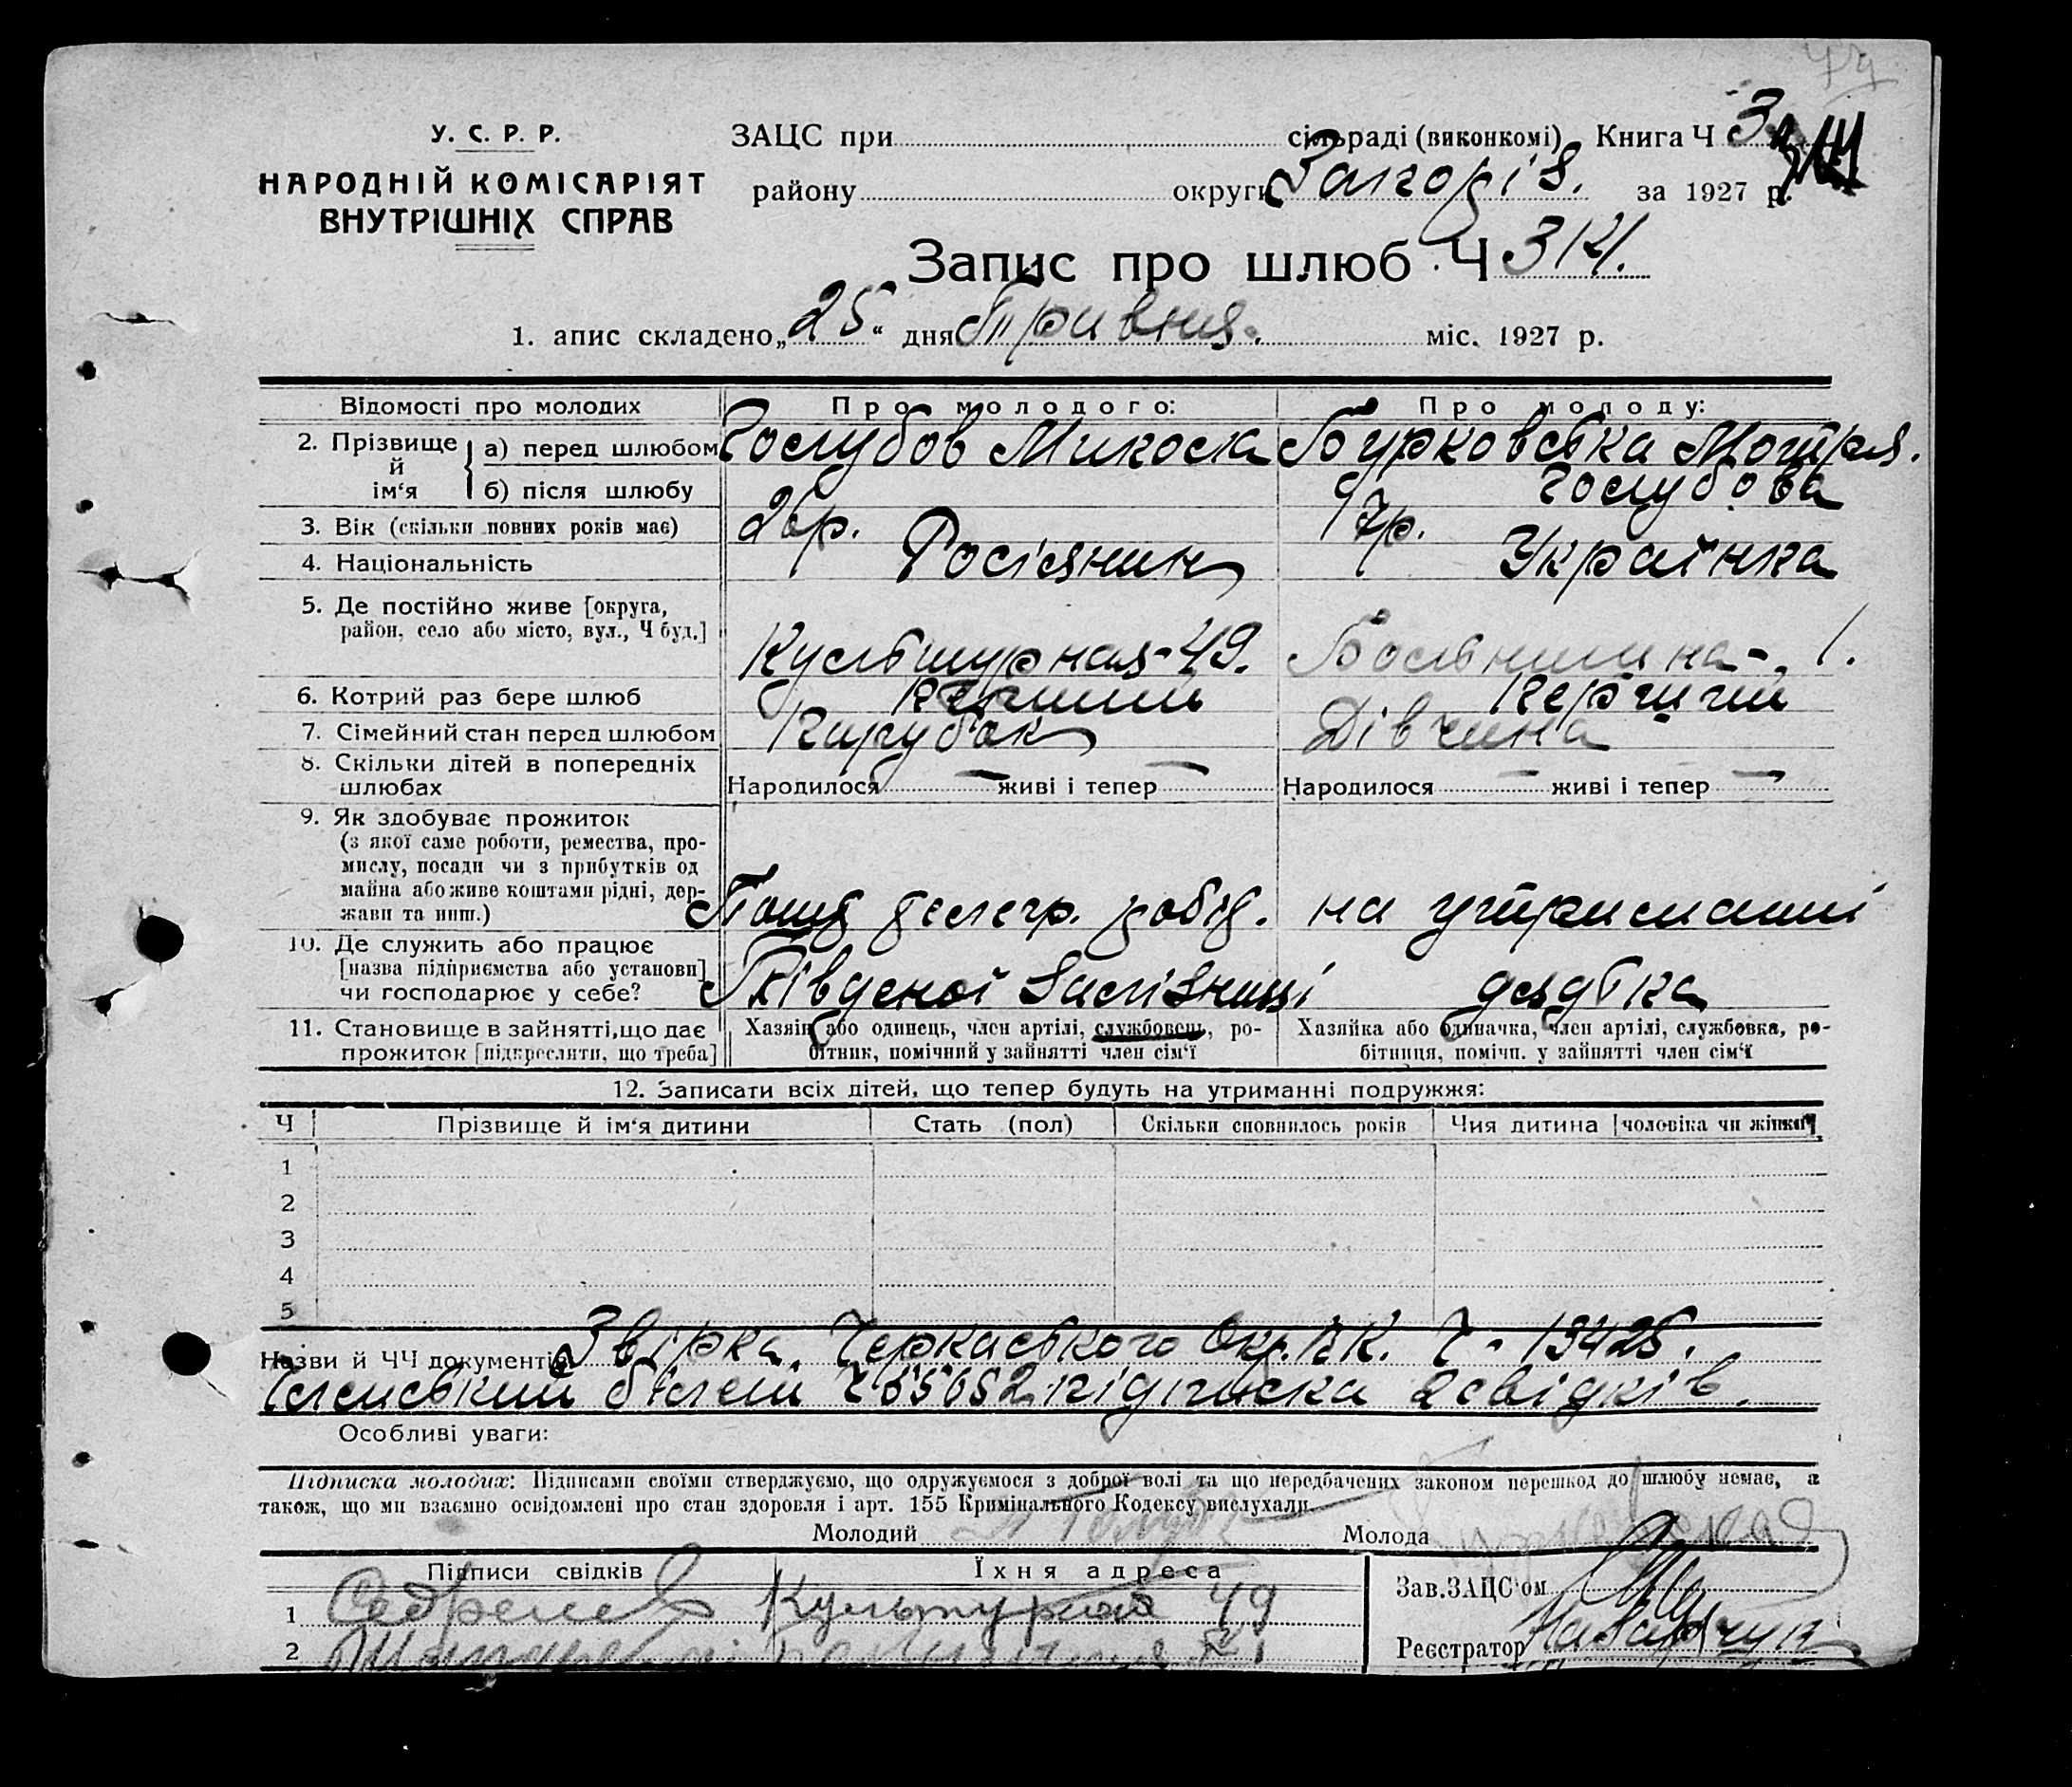 У. С. Р. Р.
НАРОДНІЙ КОМІСАРІЯТ
ВНУТРІШНІХ СПРАВ
ЗАЦС при сільраді (виконкомі) Книга Ч 3
району округи за 1927 р.
Запис про шлюб Ч 314.
1. апис складено „25“ дня Травня міс. 1927 р.
Відомості про молодих
Про молодого:
Про молоду:
2. Прізвище й ім‘я
а) перед шлюбом
Голубов Микола
Бурковська Мотря.
б) після шлюбу
Голубова
3. Вік (скільки повних років має)
26р.
17р.
4. Національність
Росіянин
Українка
5. Де постійно живе [округа,
район, село або місто, вул., Ч буд.]
Культурная-49.
Больнична-. 1.
6. Котрий раз бере шлюб
перший
7. Сімейний стан перед шлюбом
Парубок
Дівчина
8. Скільки дітей в попередніх
шлюбах
Народилося — живі і тепер —
Народилося — живі і тепер —
9. Як здобуває прожиток
(з якої саме роботи, ремества, про-
мислу, посади чи з прибутків од
майна або живе коштами рідні, дер-
жави та инш.)
на утриманні
10. Де служить або працює
[назва підприємства або установи]
чи господарює у себе?
Південої Залізниці
дядька
11. Становище в зайнятті, що дає
прожиток [підкреслити, що треба]
Хазяін або одинець, член артілі, службовець, ро-
бітник, помічний у зайнятті член сім‘ї
Хазяйка або одиначка, член артілі, службовка, ро-
бітниця, помічн. у зайнятті член сім‘ї
12. Записати всіх дітей, що тепер будуть на утриманні подружжя:
Ч
Прізвище й ім‘я дитини
Стать (пол)
Скільки сповнилось років
Чия дитина [чоловіка чи жінки]
1
2
3
4
5
Назви й ЧЧ документів Звірка Черкаського Окр. В.К. Ч - 13425.
Членський білет Ч 65652 підписка 2 свідків.
Особливі уваги:
Підписка молодих: Підписами своїми стверджуємо, що одружуємося з доброї волі та що передбачених законом перешкод до шлюбу немає, а
також, що ми взаємно освідомлені про стан здоровля і арт. 155 Кримінального Кодексу вислухали
Молодий
Молода
Підписи свідків
Їхня адреса
Зав.ЗАЦС‘ом
1 Культурная 49
Реєстратор
2